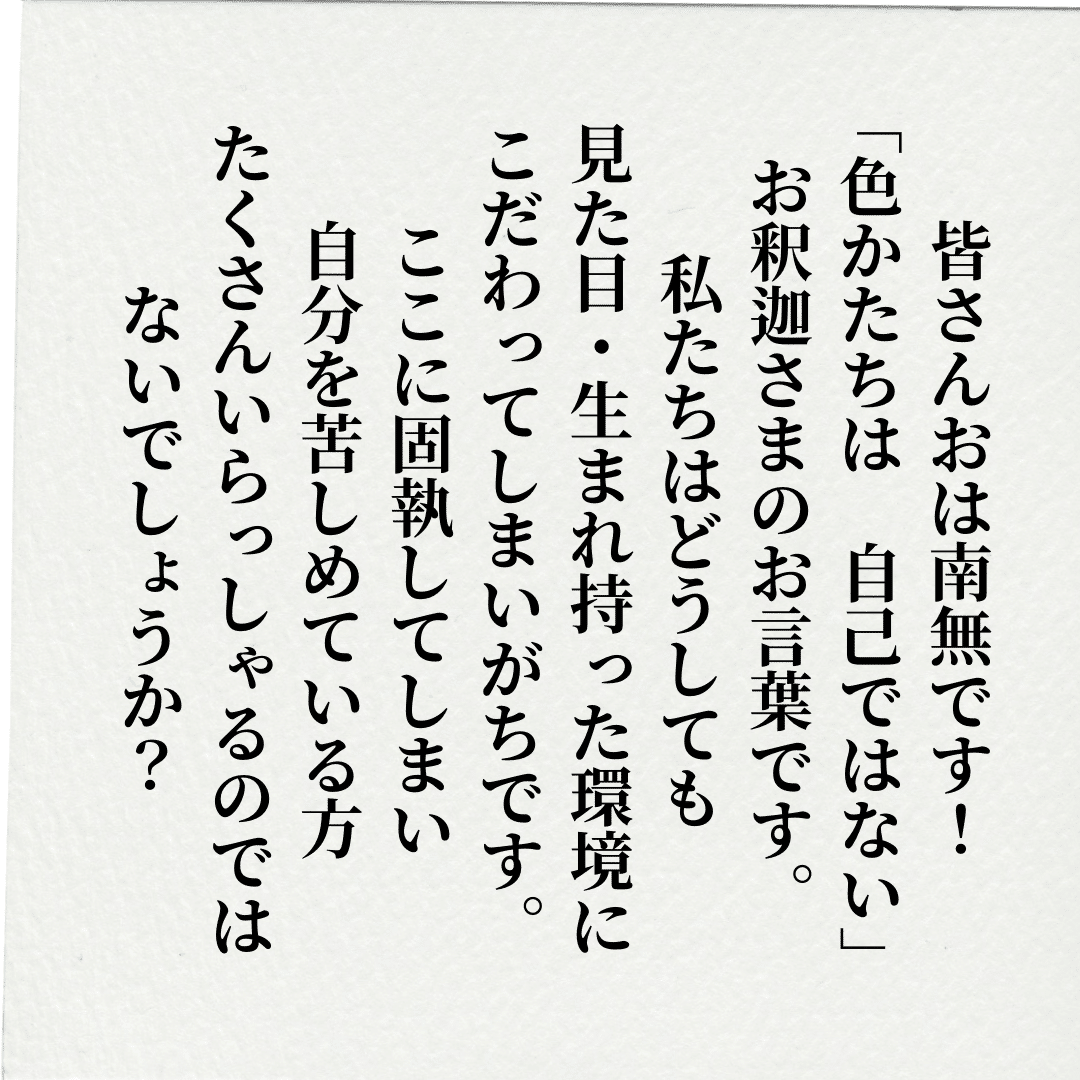 皆さんおは南無です！
「色かたちは　自己ではない」
お釈迦さまのお言葉です。
私たちはどうしても
見た目・生まれ持った環境に
こだわってしまいがちです。
ここに固執してしまい
自分を苦しめている方
たくさんいらっしゃるのでは
ないでしょうか？